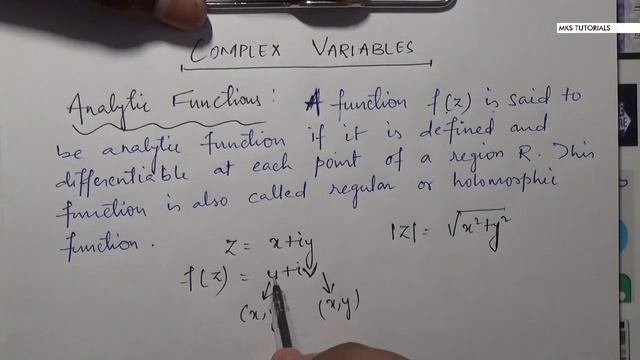 MKS TUTORIALS
COMPLEX VARIABLES
Analytic Functions: A function f(z) is said to
be analytic function if it is defined and
differentiable at each point of a region R. This
function is also called regular or holomorphic
function.
z = x+iy
|z| = √x²+y²
f(z) = u+iv
(x,
(x,y)